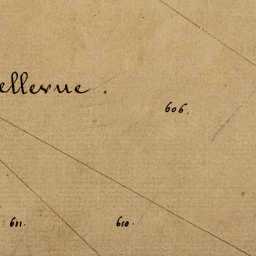 ellevue.
606.
611.
610.